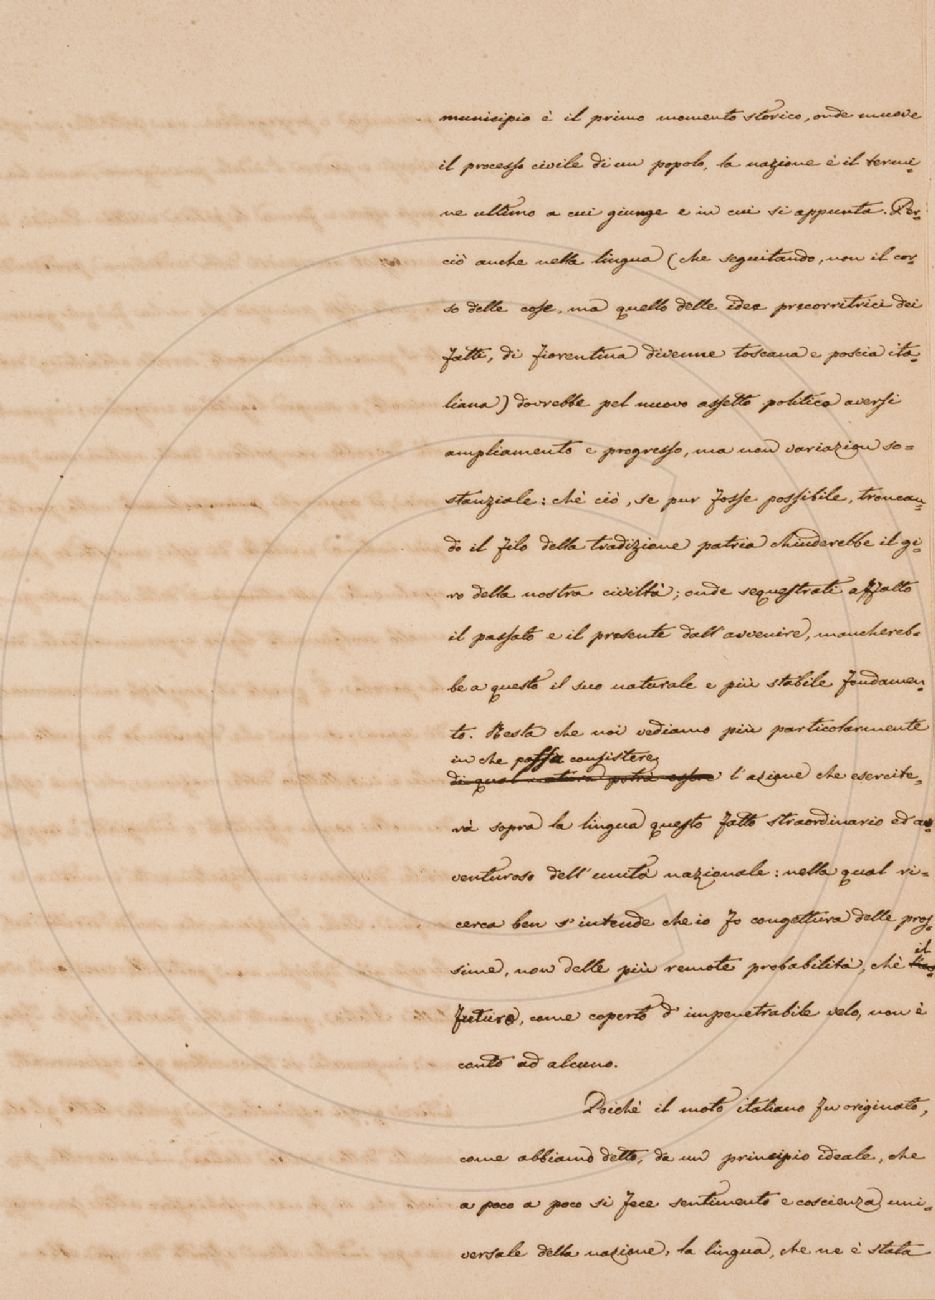 municipio è il primo momento storico, onde muove
il processo civile di un popolo, la nazione è il termi=
ne ultimo a cui giunge e in cui si appunta. Per=
ciò anche nella lingua (che seguitando, non il cor=
so delle cose, ma quello delle idee precorritrici dei
fatti, di fiorentina divenne toscana e poscia ita=
liana) dovrebbe pel nuovo assetto politico aversi
ampliamento e progresso, ma non variazion so=
stanziale: chè ciò, se pur fosse possibile, troncan=
do il filo della tradizione patria chiuderebbe il gi=
ro della nostra civiltà; onde sequestrati affatto
il passato e il presente dall'avvenire, manchereb=
be a questo il suo naturale e più stabile fondamen=
to. Resta che noi vediamo più particolarmente
in che possa consistere
di qual natura potrà essere l'azione che esercite=
rà sopra la lingua questo fatto straordinario ed av=
venturoso dell'unità nazionale: nella qual ri=
cerca ben s'intende che io fo congettura delle pros=
sime, non delle più remote probabilità, chè il
futuro, come coperto d'impenetrabile velo, non è
conto ad alcuno.
Poichè il moto italiano fu originato,
come abbiamo detto, da un principio ideale, che
a poco a poco si fece sentimento e coscienza uni=
versale della nazione, la lingua, che ne è stata